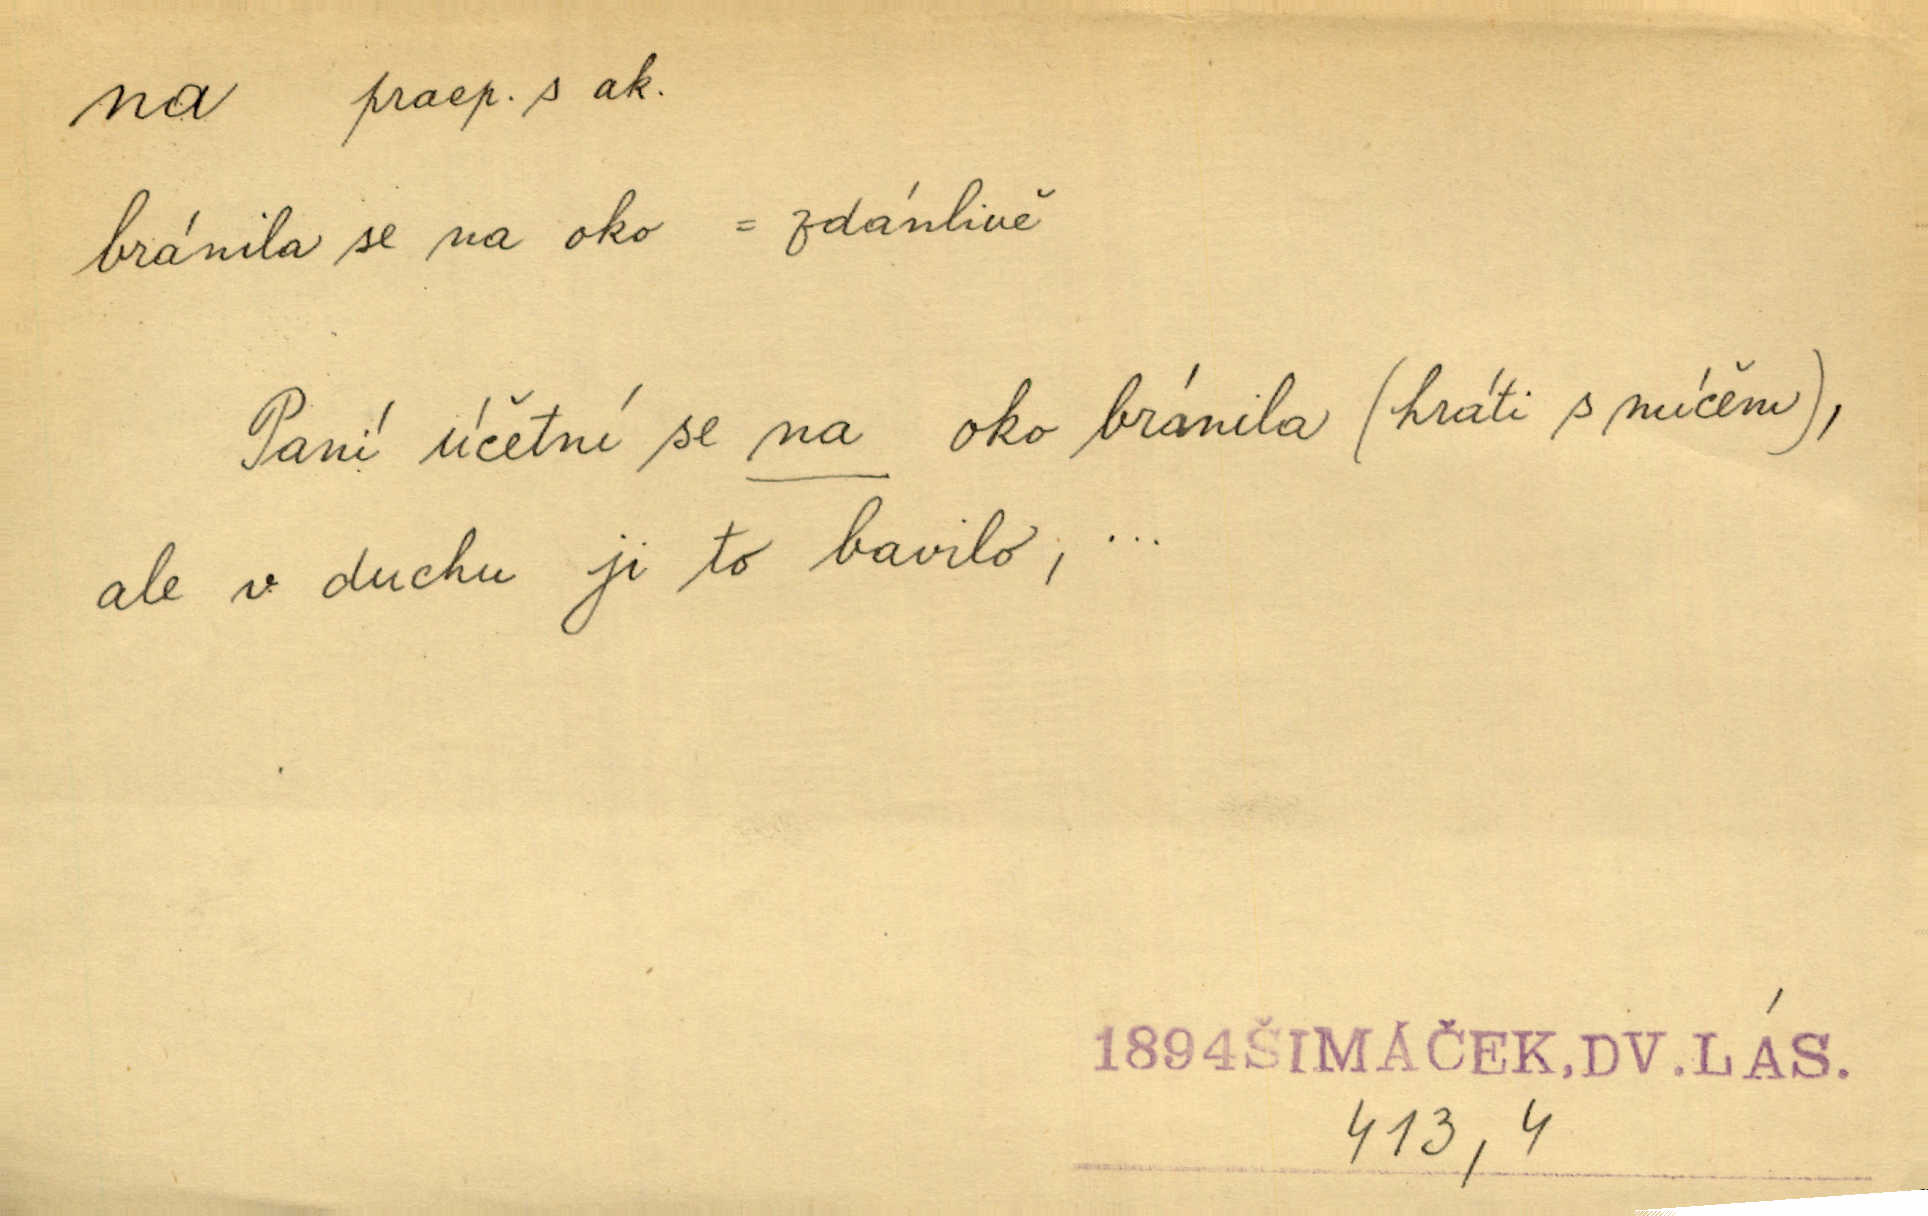 na praep. s ak.
bránila se na oko = zdánlivě
Paní účetní se na oko bránila (hráti s míčem),
ale v duchu ji to bavilo, ...
1894 ŠIMÁČEK, DV. LÁS.
413, 4